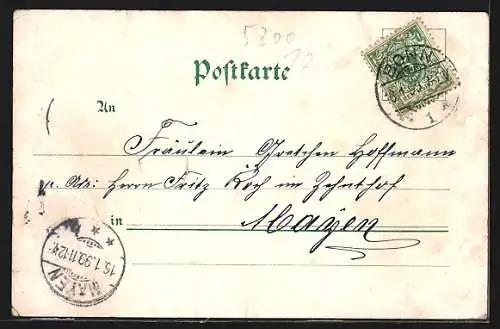 5300
12
Postkarte
BONN
1
An
Fräulein Gretchen Hoffmann
p. Adr: Herrn Fritz Koch im Zehnthof
in Mayen
15.1.99.11-12V.
MAYEN